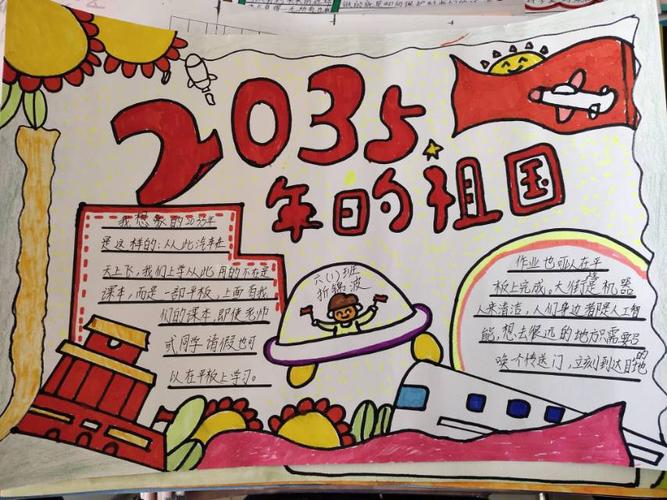 2035
年的祖国
我想象的2035年
是这样的:从此汽车在
天上飞,我们上学从此用的不在是
课本,而是一部平板,上面有我
们的课本,即使老师
或同学请假也可
以在平板上学习。
六(1)班
折锦波
作业也可以在平
板上完成,大街是机器
人来清洁,人们身边有陪人工智
能,想去很远的地方只需要
唤个传送门,立刻到达目的地